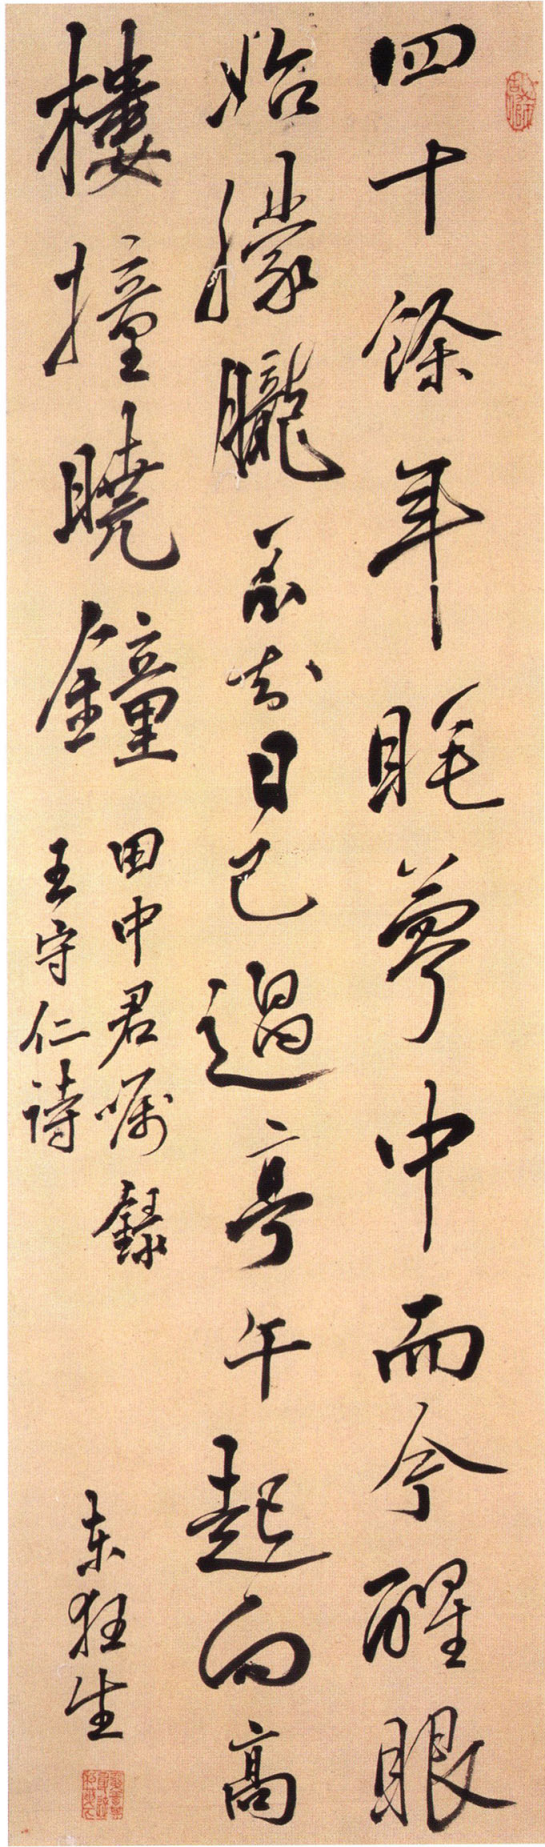 四十餘年睡夢中而今醒眼
始朦朧不知日已過亭午起向高
樓撞曉鐘
田中君嘱錄
王守仁詩
东狂生